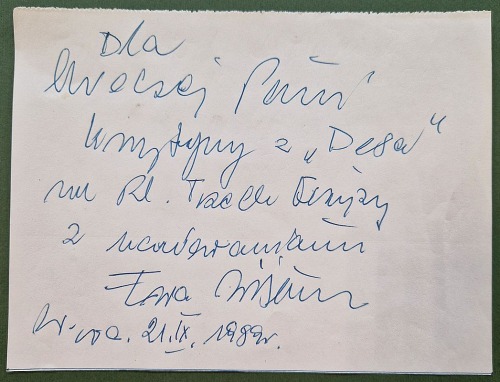 Dla
Uroczej Pani
Krystyny z „Desa"
na Pl. Trzech Krzyży
z ucałowaniami
Ewa
W-wa. 21.IX.1989r.